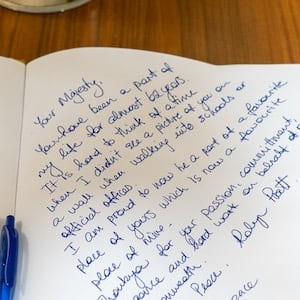 Your Majesty.
You have been a part of
my life for almost 62 years.
It is hard to think of a time
when I didn't see a picture of you on
a wall when walking into schools or
official offices.
I am proud to now be a part of a favourite
place of yours which is now a favourite
place of mine.
Thankyou for your passion, committment,
and hard work on behalf of
Peace.